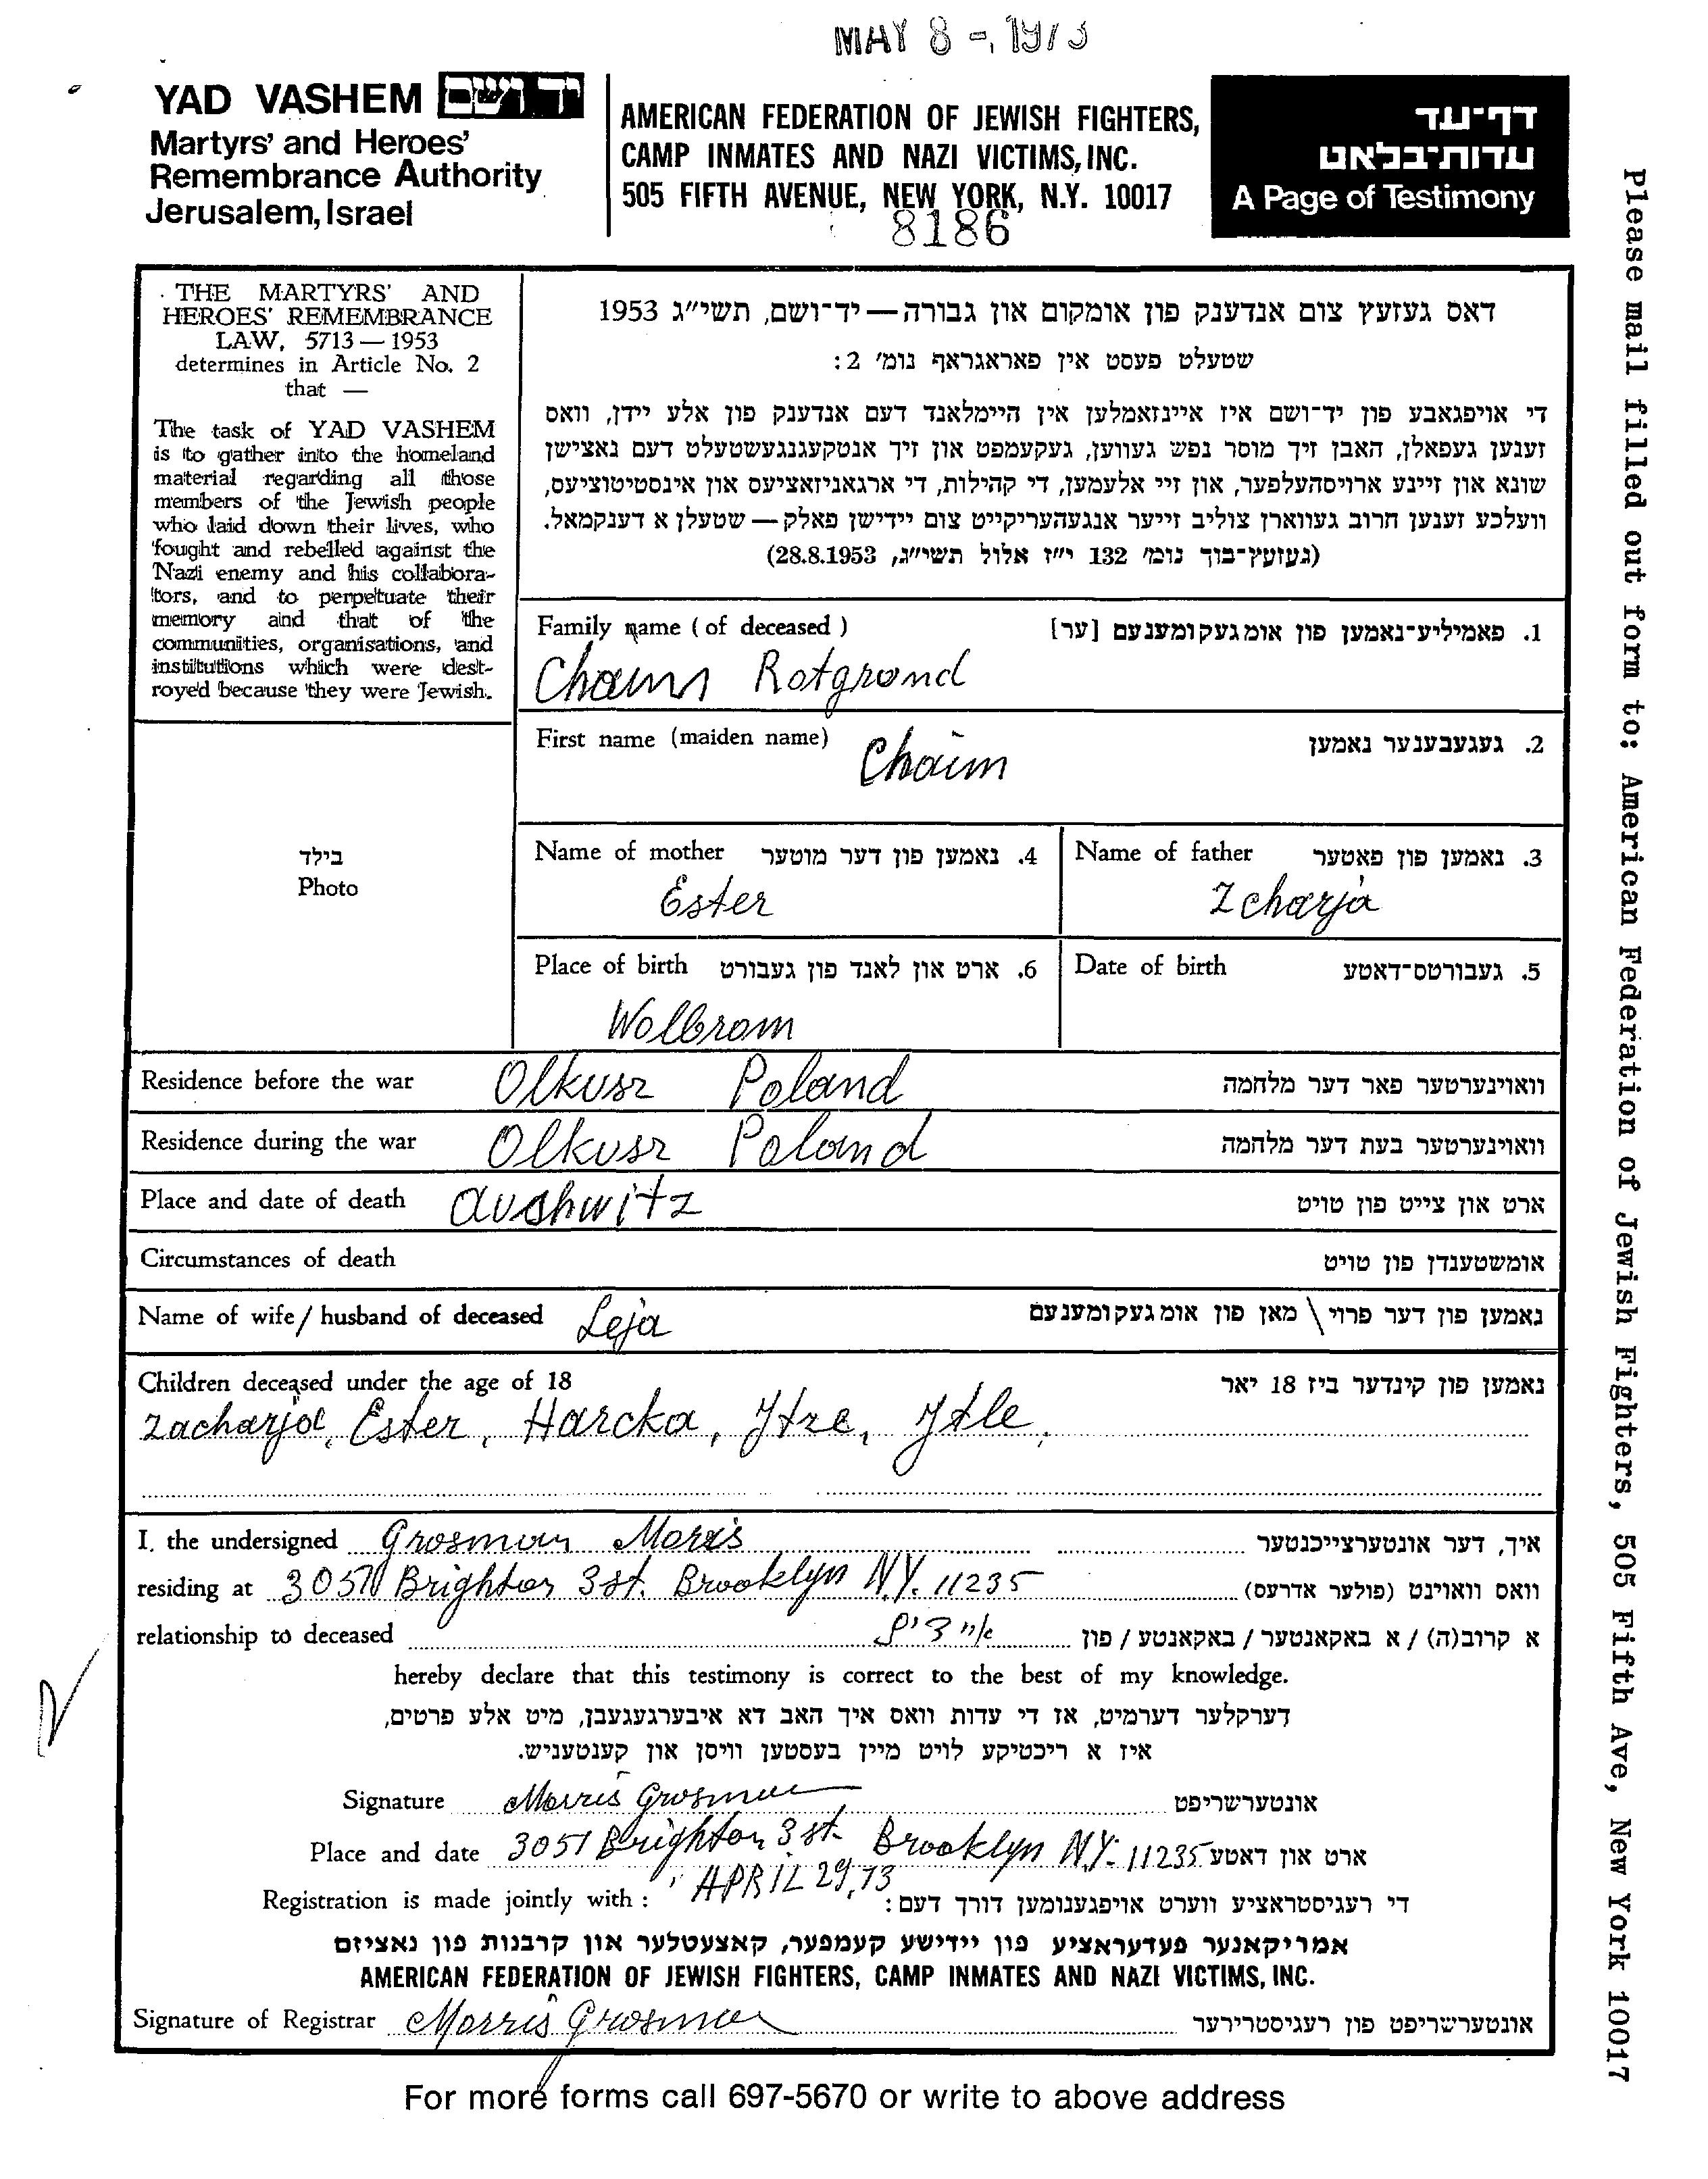 MAY 8 -, 1973
YAD VASHEM יד ושם
Martyrs' and Heroes'
Remembrance Authority
Jerusalem, Israel
AMERICAN FEDERATION OF JEWISH FIGHTERS,
CAMP INMATES AND NAZI VICTIMS, INC.
505 FIFTH AVENUE, NEW YORK, N.Y. 10017
8186
דף־עד
עדות־בלאט
A Page of Testimony
THE MARTYRS' AND
HEROES' REMEMBRANCE
LAW, 5713 — 1953
determines in Article No. 2
that —
The task of YAD VASHEM
is to gather into the homeland
material regarding all those
members of the Jewish people
who laid down their lives, who
fought and rebelled against the
Nazi enemy and his collabora-
tors, and to perpetuate their
memory and that of the
communities, organisations, and
institutions which were dest-
royed because they were Jewish.
דאס געזעץ צום אנדענק פון אומקום און גבורה — יד־ושם, תשי״ג 1953
שטעלט פעסט אין פאראגראף נומ׳ 2:
די אויפגאבע פון יד־ושם איז איינזאמלען אין היימלאנד דעם אנדענק פון אלע יידן, וואס
זענען געפאלן, האבן זיך מוסר נפש געווען, געקעמפט און זיך אנטקעגנגעשטעלט דעם נאצישן
שונא און זיינע ארויסהעלפער, און זיי אלעמען, די קהילות, די ארגאניזאציעס און אינסטיטוציעס,
וועלכע זענען חרוב געווארן צוליב זייער אנגעהעריקייט צום יידישן פאלק — שטעלן א דענקמאל.
(געזעץ־בוך נומ׳ 132 י״ז אלול תשי״ג, 28.8.1953)
Family name (of deceased) 1. פאמיליע־נאמען פון אומגעקומענעם [ער]
Chaim Rotgrond
First name (maiden name) 2. געגעבענער נאמען
Chaim
בילד
Photo
Name of mother 4. נאמען פון דער מוטער
Ester
Name of father 3. נאמען פון פאטער
Zcharja
Place of birth 6. ארט און לאנד פון געבורט
Wolbrom
Date of birth 5. געבורטס־דאטע
Residence before the war Olkusz Poland וואוינערטער פאר דער מלחמה
Residence during the war Olkusz Poland וואוינערטער בעת דער מלחמה
Place and date of death Aushwitz ארט און צייט פון טויט
Circumstances of death אומשטענדן פון טויט
Name of wife / husband of deceased Leja נאמען פון דער פרוי \ מאן פון אומגעקומענעם
Children deceased under the age of 18 נאמען פון קינדער ביז 18 יאר
Zacharja, Ester, Harcka, Jtze, Jtle,
I, the undersigned Grosman Morris איך, דער אונטערצייכנטער
residing at 3051 Brighton 3 st. Brooklyn N.Y. 11235 וואס וואוינט (פולער אדרעס)
relationship to deceased א קרוב(ה) / א באקאנטער / באקאנטע / פון
hereby declare that this testimony is correct to the best of my knowledge.
דערקלער דערמיט, אז די עדות וואס איך האב דא איבערגעגעבן, מיט אלע פרטים,
איז א ריכטיקע לויט מיין בעסטען וויסן און קענטעניש.
Signature Morris Grosman אונטערשריפט
Place and date 3051 Brighton 3 st. Brooklyn N.Y. 11235 ארט און דאטע
APRIL 29, 73
Registration is made jointly with: די רעגיסטראציע ווערט אויפגענומען דורך דעם:
אמריקאנער פעדעראציע פון יידישע קעמפער, קאצעטלער און קרבנות פון נאציזם
AMERICAN FEDERATION OF JEWISH FIGHTERS, CAMP INMATES AND NAZI VICTIMS, INC.
Signature of Registrar Morris Grosman אונטערשריפט פון רעגיסטרירער
For more forms call 697-5670 or write to above address
Please mail filled out form to: American Federation of Jewish Fighters, 505 Fifth Ave, New York 10017